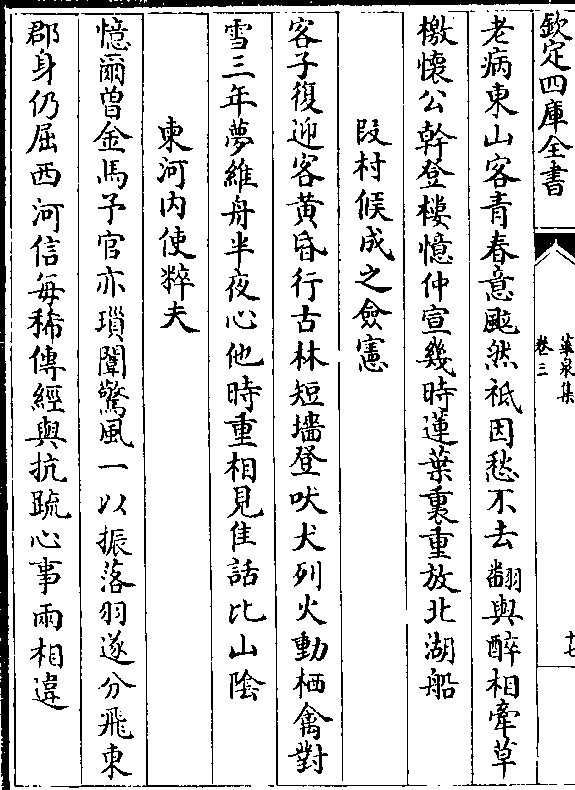 欽定四庫全書
華泉集
卷三
十七
老病東山客青春意颯然祗因愁不去翻與醉相牽草
檄懷公幹登樓憶仲宣幾時蓮葉裏重放北湖船
段村候成之僉憲
客子復迎客黄昏行古林短墻登吠犬列火動栖禽對
雪三年夢維舟半夜心他時重相見佳話比山陰
東河内使粹夫
憶爾曾金馬子官亦瑣闈驚風一以振落羽遂分飛東
郡身仍屈西河信每稀傳經與抗疏心事兩相違